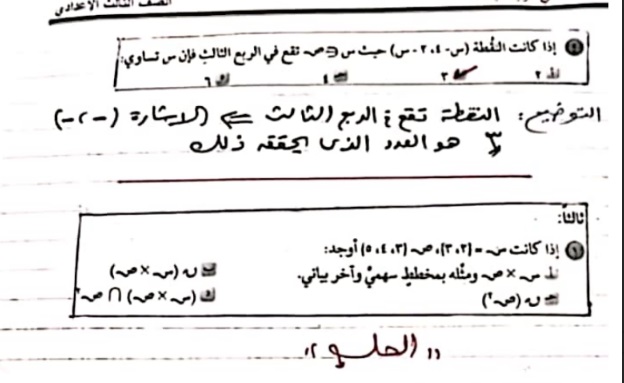 الصف الثالث الإعدادي
٥ إذا كانت النقطة (س - ٤، ٢ - س) حيث س ∈ ص تقع في الربع الثالث فإن س تساوي:
أ ٢ ب ٣ ج ٤ د ٦
التوضيح: النقطة تقع في الربع الثالث ⇐ الإشارة (-، -)
٣ هو العدد الذي يحققه ذلك
ثالثاً:
١ إذا كانت س = {٢، ٣}، ص {٣، ٤، ٥} أوجد:
أ س × ص ومثله بمخطط سهمي وآخر بياني. ب ن (س × ص)
ج ن (ص ٢) د (س × ص) ∩ ص٢
" الحلـــ "